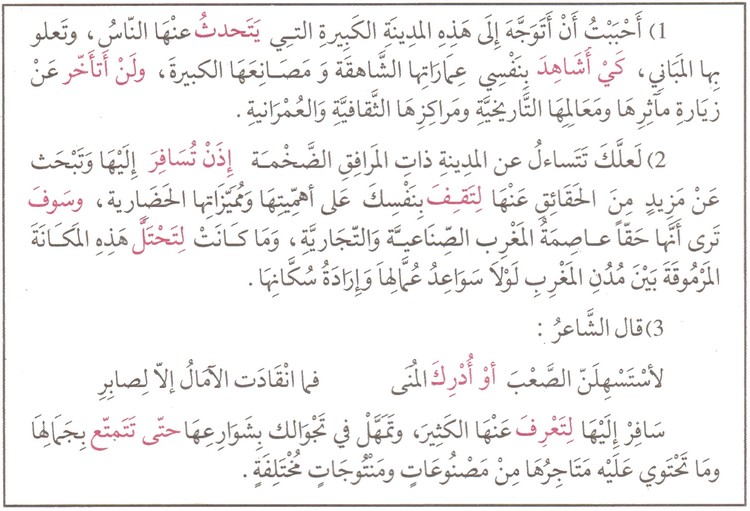 1) أَحْبَبْتُ أَنْ أَتَوَجَّهَ إِلَى هَذِهِ المدِينَةِ الكَبِيرةِ التي يَتَحدثُ عنْهَا النّاسُ، وتَعلو
بِها المَبَاني، كَيْ أُشَاهِدَ بِنَفْسِي عِمَارَاتِها الشَّاهقَةَ وَ مَصَانِعَهَا الكبيرةَ، ولَنْ أَتأَخّر عَنْ
زِيَارةِ مآثِرِهَا ومَعَالِمِهَا التَّاريخيَّةِ ومَراكِزِهَا الثَّقافيَّةِ والعُمْرَانيةِ.
2) لَعلَّكَ تَتَساءلُ عن المدِينةِ ذاتِ المَرافِقِ الضَّخْمَة إِذَنْ تُسَافِرَ إِلَيْهَا وَتَبْحَث
عَنْ مَزِيدٍ مِنَ الحَقَائقِ عَنْهَا لِتَقِفَ بِنَفْسِكَ عَلى أَهمِّيتِهَا ومُمَيّزَاتِها الحَضَارية، وسَوفَ
تَرى أَنَّها حَقّاً عاصِمَةُ المَغْرِب الصِّناعيَّة والتّجَاريَّةِ، وَمَا كَانَتْ لِتَحْتَلَّ هَذِهِ المَكَانَةَ
المَرْمُوقَةَ بَيْنَ مُدُنِ المَغْرِبِ لَوْلاَ سَوَاعِدُ عُمَّالِهاَ وَإِرَادَةُ سُكَّانِهَا.
3) قال الشَّاعرُ :
لأسْتَسْهِلَنّ الصَّعْبَ أوْ أُدْرِكَ المُنَى فما انْقَادَت الآمَالُ إلاّ لِصابِرِ
سَافِرْ إلَيْهَا لِتَعْرِفَ عَنْهَا الكَثِيرَ، وتَمَهَّلْ في تَجْوَالك بِشَوارِعِهَا حتّى تَتَمتّع بِجَمَالِهَا
ومَا تَحْتَوي عَلَيْه مَتَاجِرُهَا مِنْ مَصْنُوعَاتٍ وَمَنْتُوجَاتٍ مُخْتَلِفَةٍ.